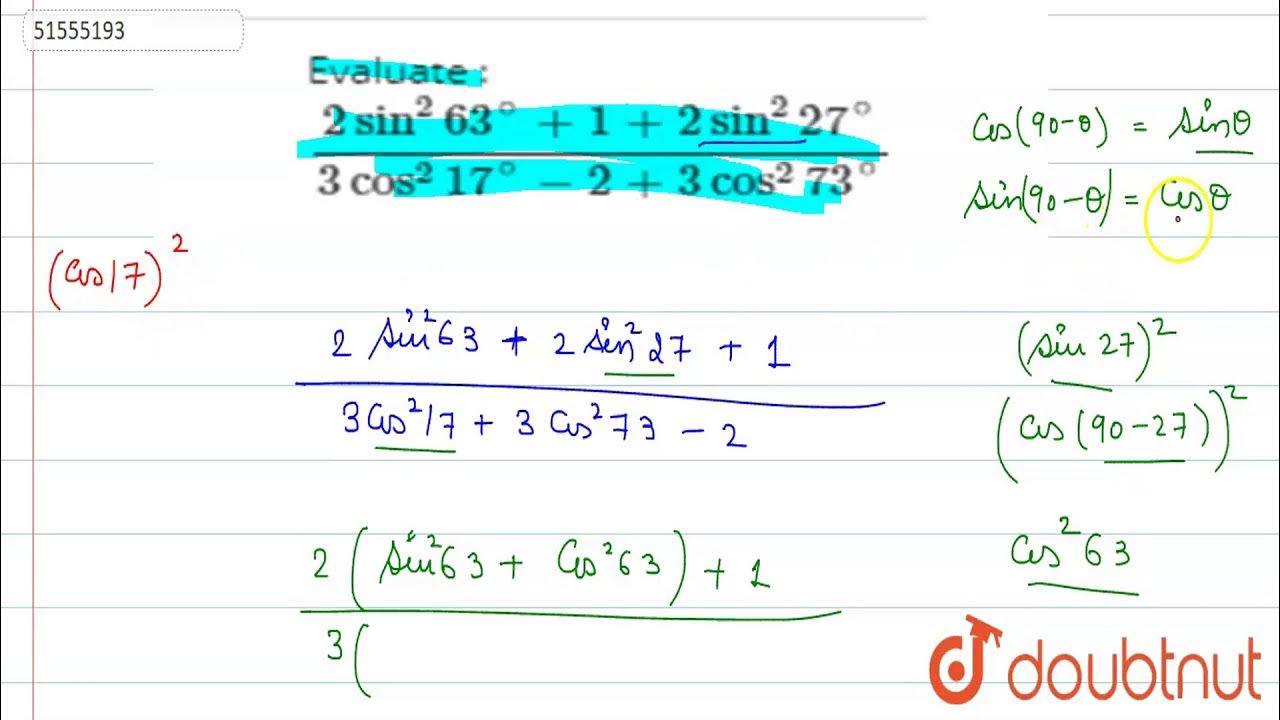 51555193
Evaluate :
2 sin² 63° + 1 + 2 sin² 27°
3 cos² 17° − 2 + 3 cos² 73°
cos(90-θ) = sinθ
sin(90-θ) = cosθ
(cos17)²
2 sin²63 + 2 sin²27 + 1
3cos²17 + 3 cos²73 - 2
(sin 27)²
(cos(90-27))²
cos²63
2 (sin²63 + cos²63) + 1
3(
doubtnut